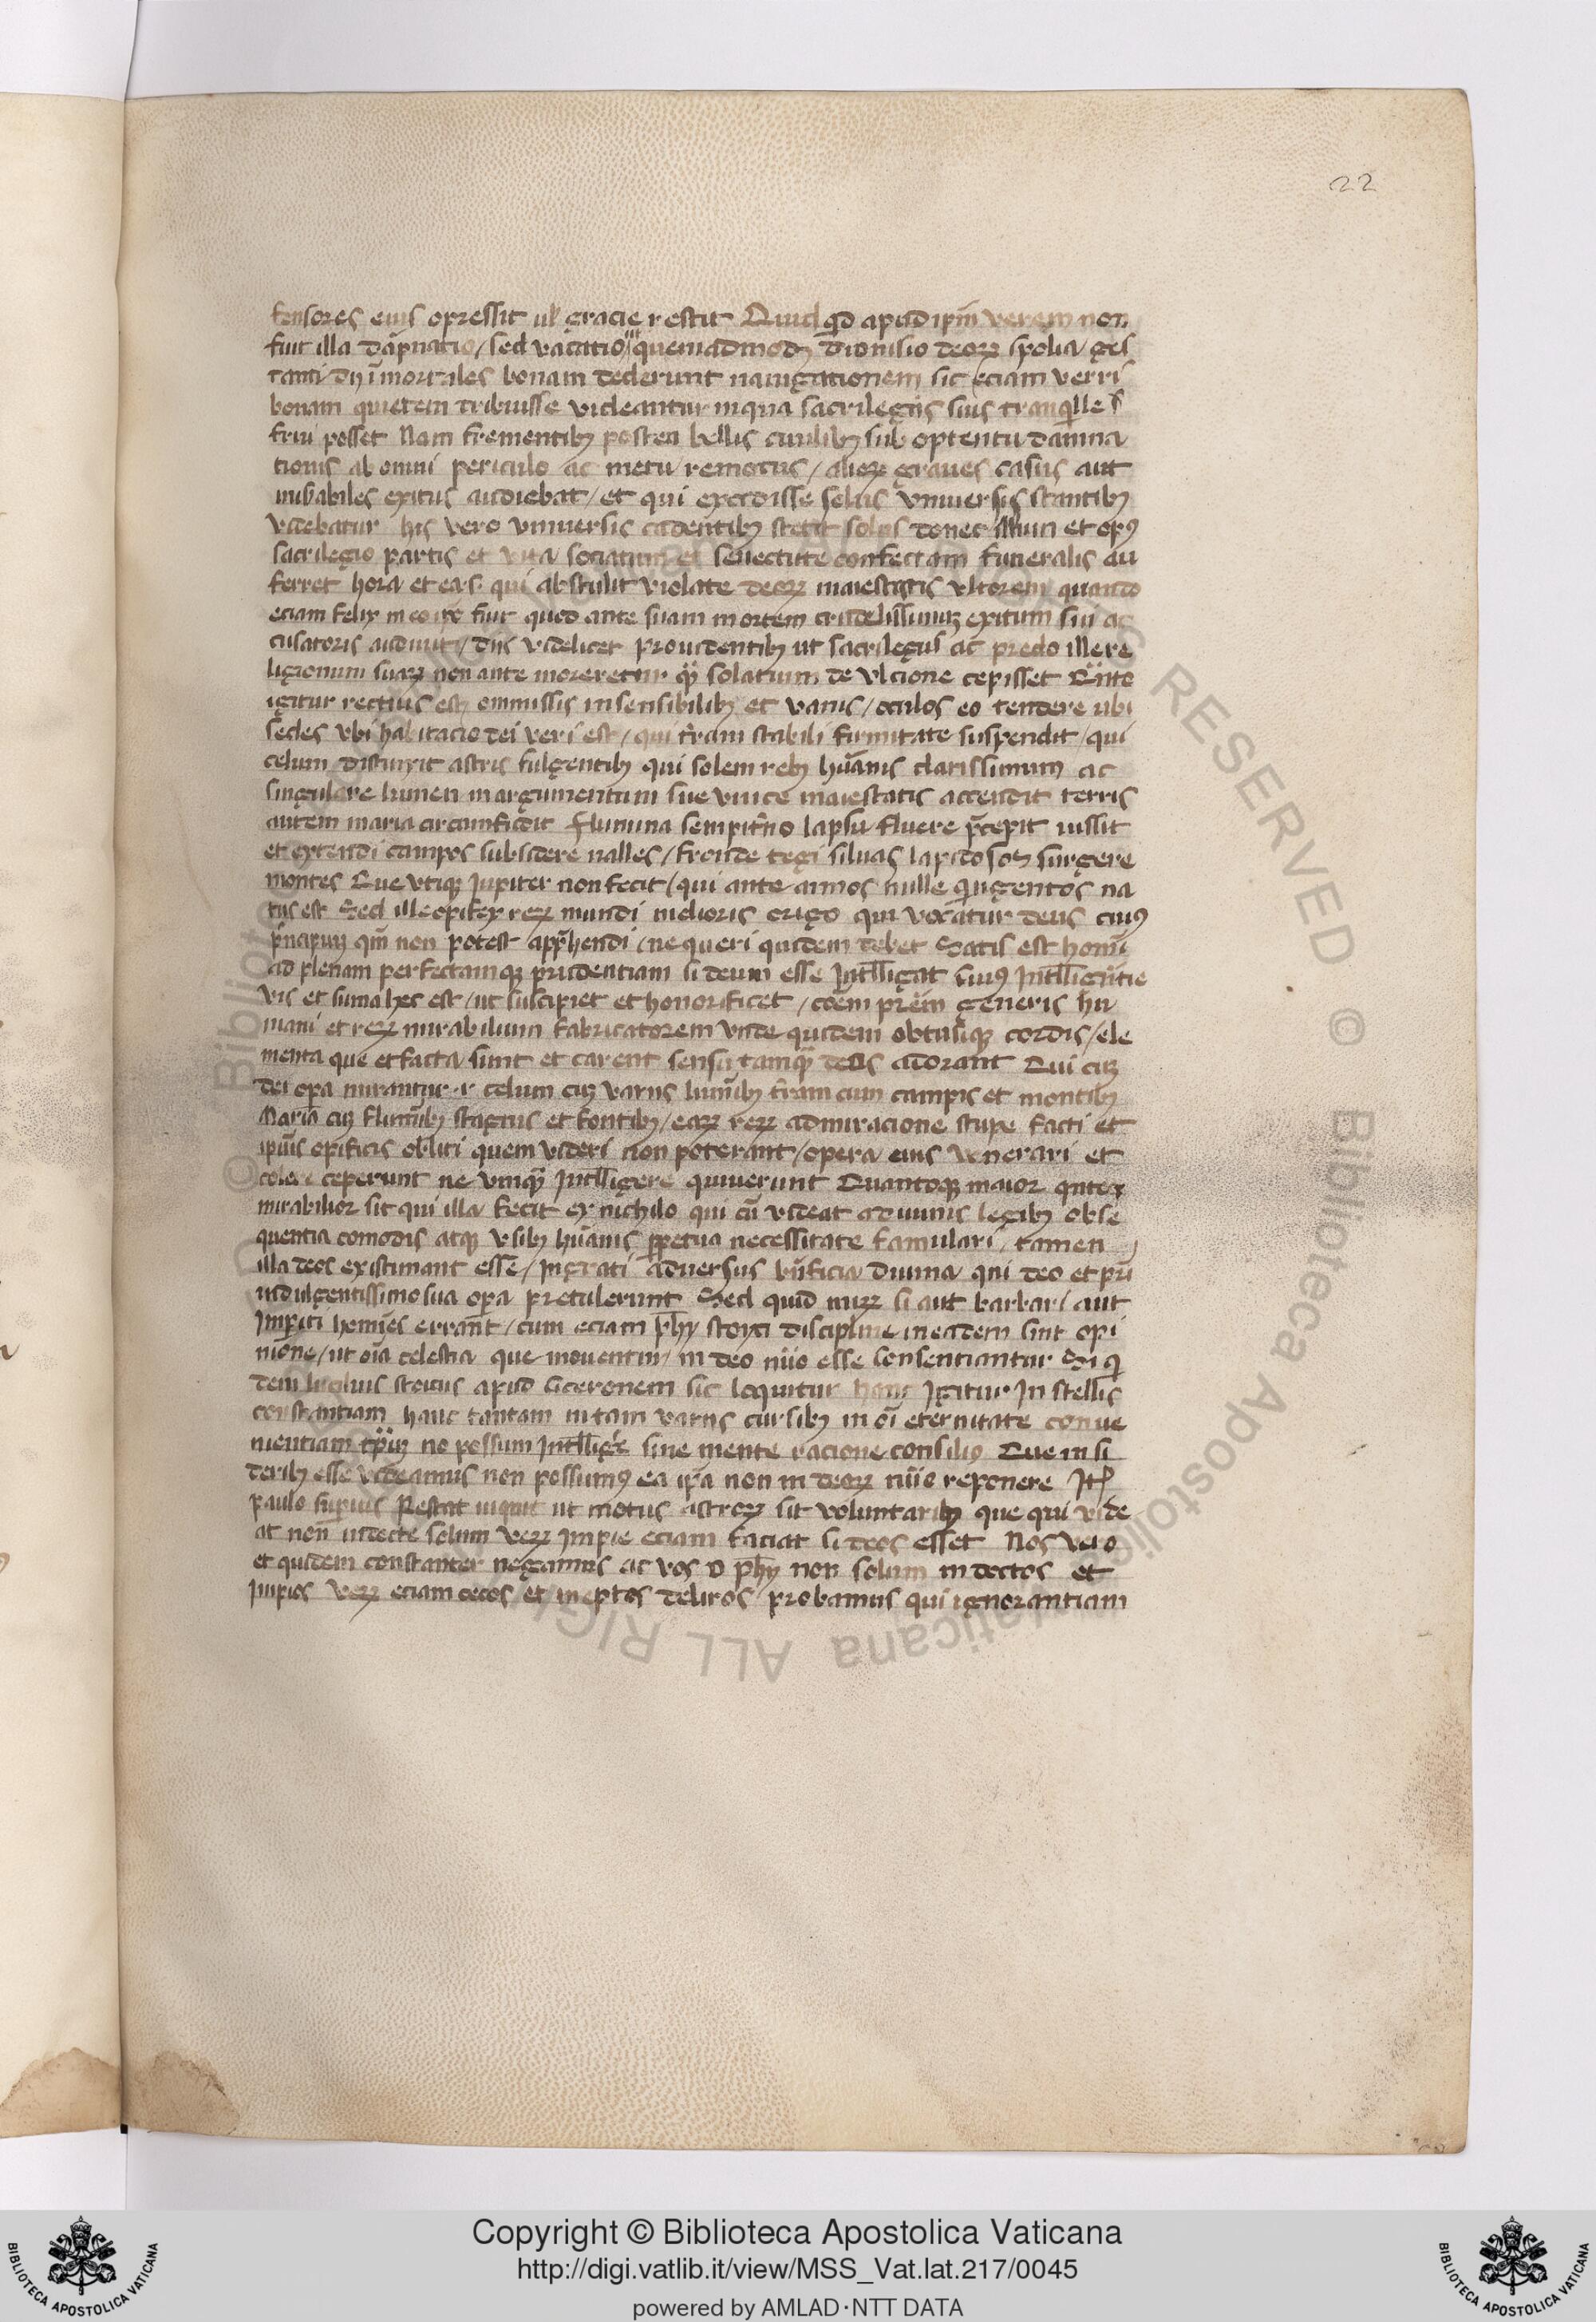 22
fensores eius opressit ul gracie restit Quid qd apud ipm verem non
fuit illa dapnatio / sed vacatio ut quemadmodu dionisio deorum spolia ges
tanti dij imortales bonam dederunt navigationem sic eciam verri
bonam quietem tribuisse videantur in qua sacrilegiis suis tranquille s
frui posset Nam frementibus postea bellis civilibus sub optentu damna
tionis ab omni periculo ac metu remotus / aliorum graves casus aut
mirabiles exitus audiebat / et qui excedisse solus universis stantibus
videbatur his vero universis cadentibus stetit solus donec illum et opus
sacrilegio partis et vita sociatum et senectute confectam funeralis au
ferret hora et eas qui abstulit violate deorum maiestatis ultorem quando
eciam felix in co fuit quod ante suam mortem crudelissimum exitum sui ac
cusatoris audivit / diis videlicet providentibus ut sacrilegus ac predo ille re
ligionum suarum non ante moreretur quam solatium de ulcione cepisset Quanto
igitur rectius est omissis insensibilibus et vanis / oculos eo tendere ubi
sedes ubi habitacio dei veri est / qui terram stabili firmitate suspendit / qui
celum distinxit astris fulgentibus qui solem rebus humanis clarissimum ac
singulare lumen in argumentum sue unice maiestatis accendit terris
autem maria circunfudit flumina sempiterno lapsu fluere precepit iussit
et extendi campos subsidere valles / fronde tegi silvas lapidosos surgere
montes Que utique Jupiter non fecit / qui ante annos mille quingentos na
tus est Sed ille opifex rerum mundi melioris origo qui vocatur deus cuius
principium quoniam non potest apprehendi / ne queri quidem debet Satis est homini
ad plenam perfectamque prudentiam si deum esse Intelligat cuius Intelligentie
vis et summa hec est / ut suscipiet et honorificet / communem patrem generis hu
mani et rerum mirabilium fabricatorem unde quidem obtusique cordis / ele
menta que et facta sunt et carent sensu tamquam deos adorant Qui cum
dei opera mirantur .i. celum cum variis luminibus terram cum campis et montibus
Maria cum fluminibus stagnis et fontibus / earum rerum admiracione stupe facti et
ipsius opificis obliti quem videri non poterant / opera eius venerari et
colere ceperunt ne unquam Intelligere quiverunt Quantoque maior quantoque
mirabilior sit qui illa fecit ex nichilo qui cum videat ad umnis legibus obse
quentia comodis atque usibus humanis perpetua necessitate famulari / tamen
illa deos existimant esse / ingrati adversus beneficia divina qui deo et patri
indulgentissimo sua opera pretulerunt Sed quid mirum si aut barbari / aut
Imperiti homines errant / cum eciam phy stoyci discipline in eadem sint opi
nione / ut omnia celestia que moventur / in deo numero esse consentiantur Si qui
dem lucilius stoicus apud Ciceronem sic loquitur hanc Igitur In stellis
constantiam hanc tantam in tam variis cursibus in omni eternitate conve
nientiam temporum non possum Intelligere sine mente racione consilio Que in si
deribus esse videamus non possumus ea ipsa non in deorum numero reponere Item
paulo superius Restat inquit ut motus astrorum sit voluntarius que qui vide
at non indocte solum verum impie eciam faciat si deos esset Nos vero
et quidem constanter negamus ac vos o phy non solum indoctos et
impios verum eciam cecos et ineptos deliros probamus qui ignorantiam
Copyright © Biblioteca Apostolica Vaticana
http://digi.vatlib.it/view/MSS_Vat.lat.217/0045
powered by AMLAD·NTT DATA